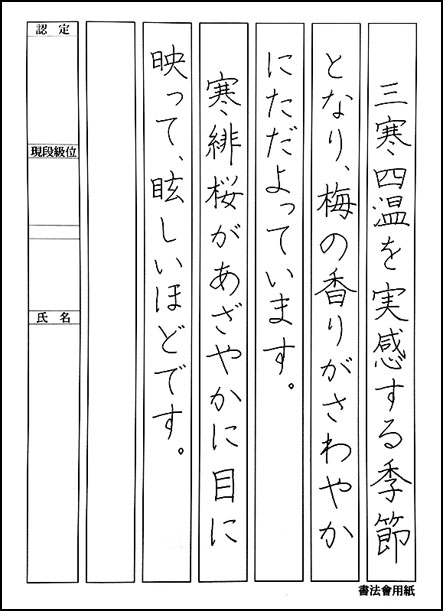 三寒四温を実感する季節
となり、梅の香りがさわやか
にただよっています。
寒緋桜があざやかに目に
映って、眩しいほどです。
認定
現段級位
氏名
書法會用紙